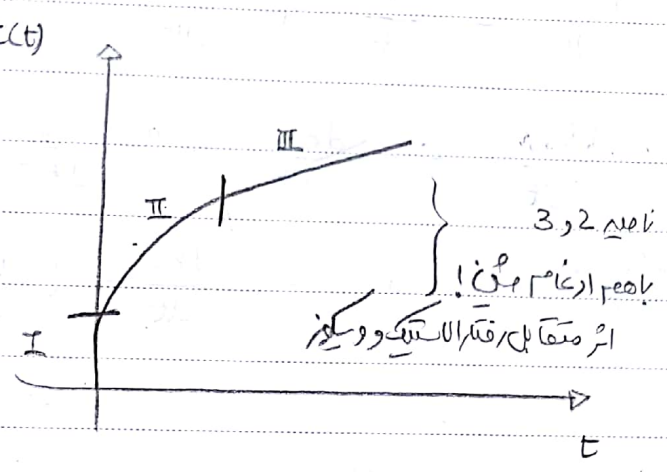 (t)
III
II
I
ناحیه 2 و 3
باهم ادغام میشن!
اثر متقابل رفتار الاستیک و ویسکوز
t